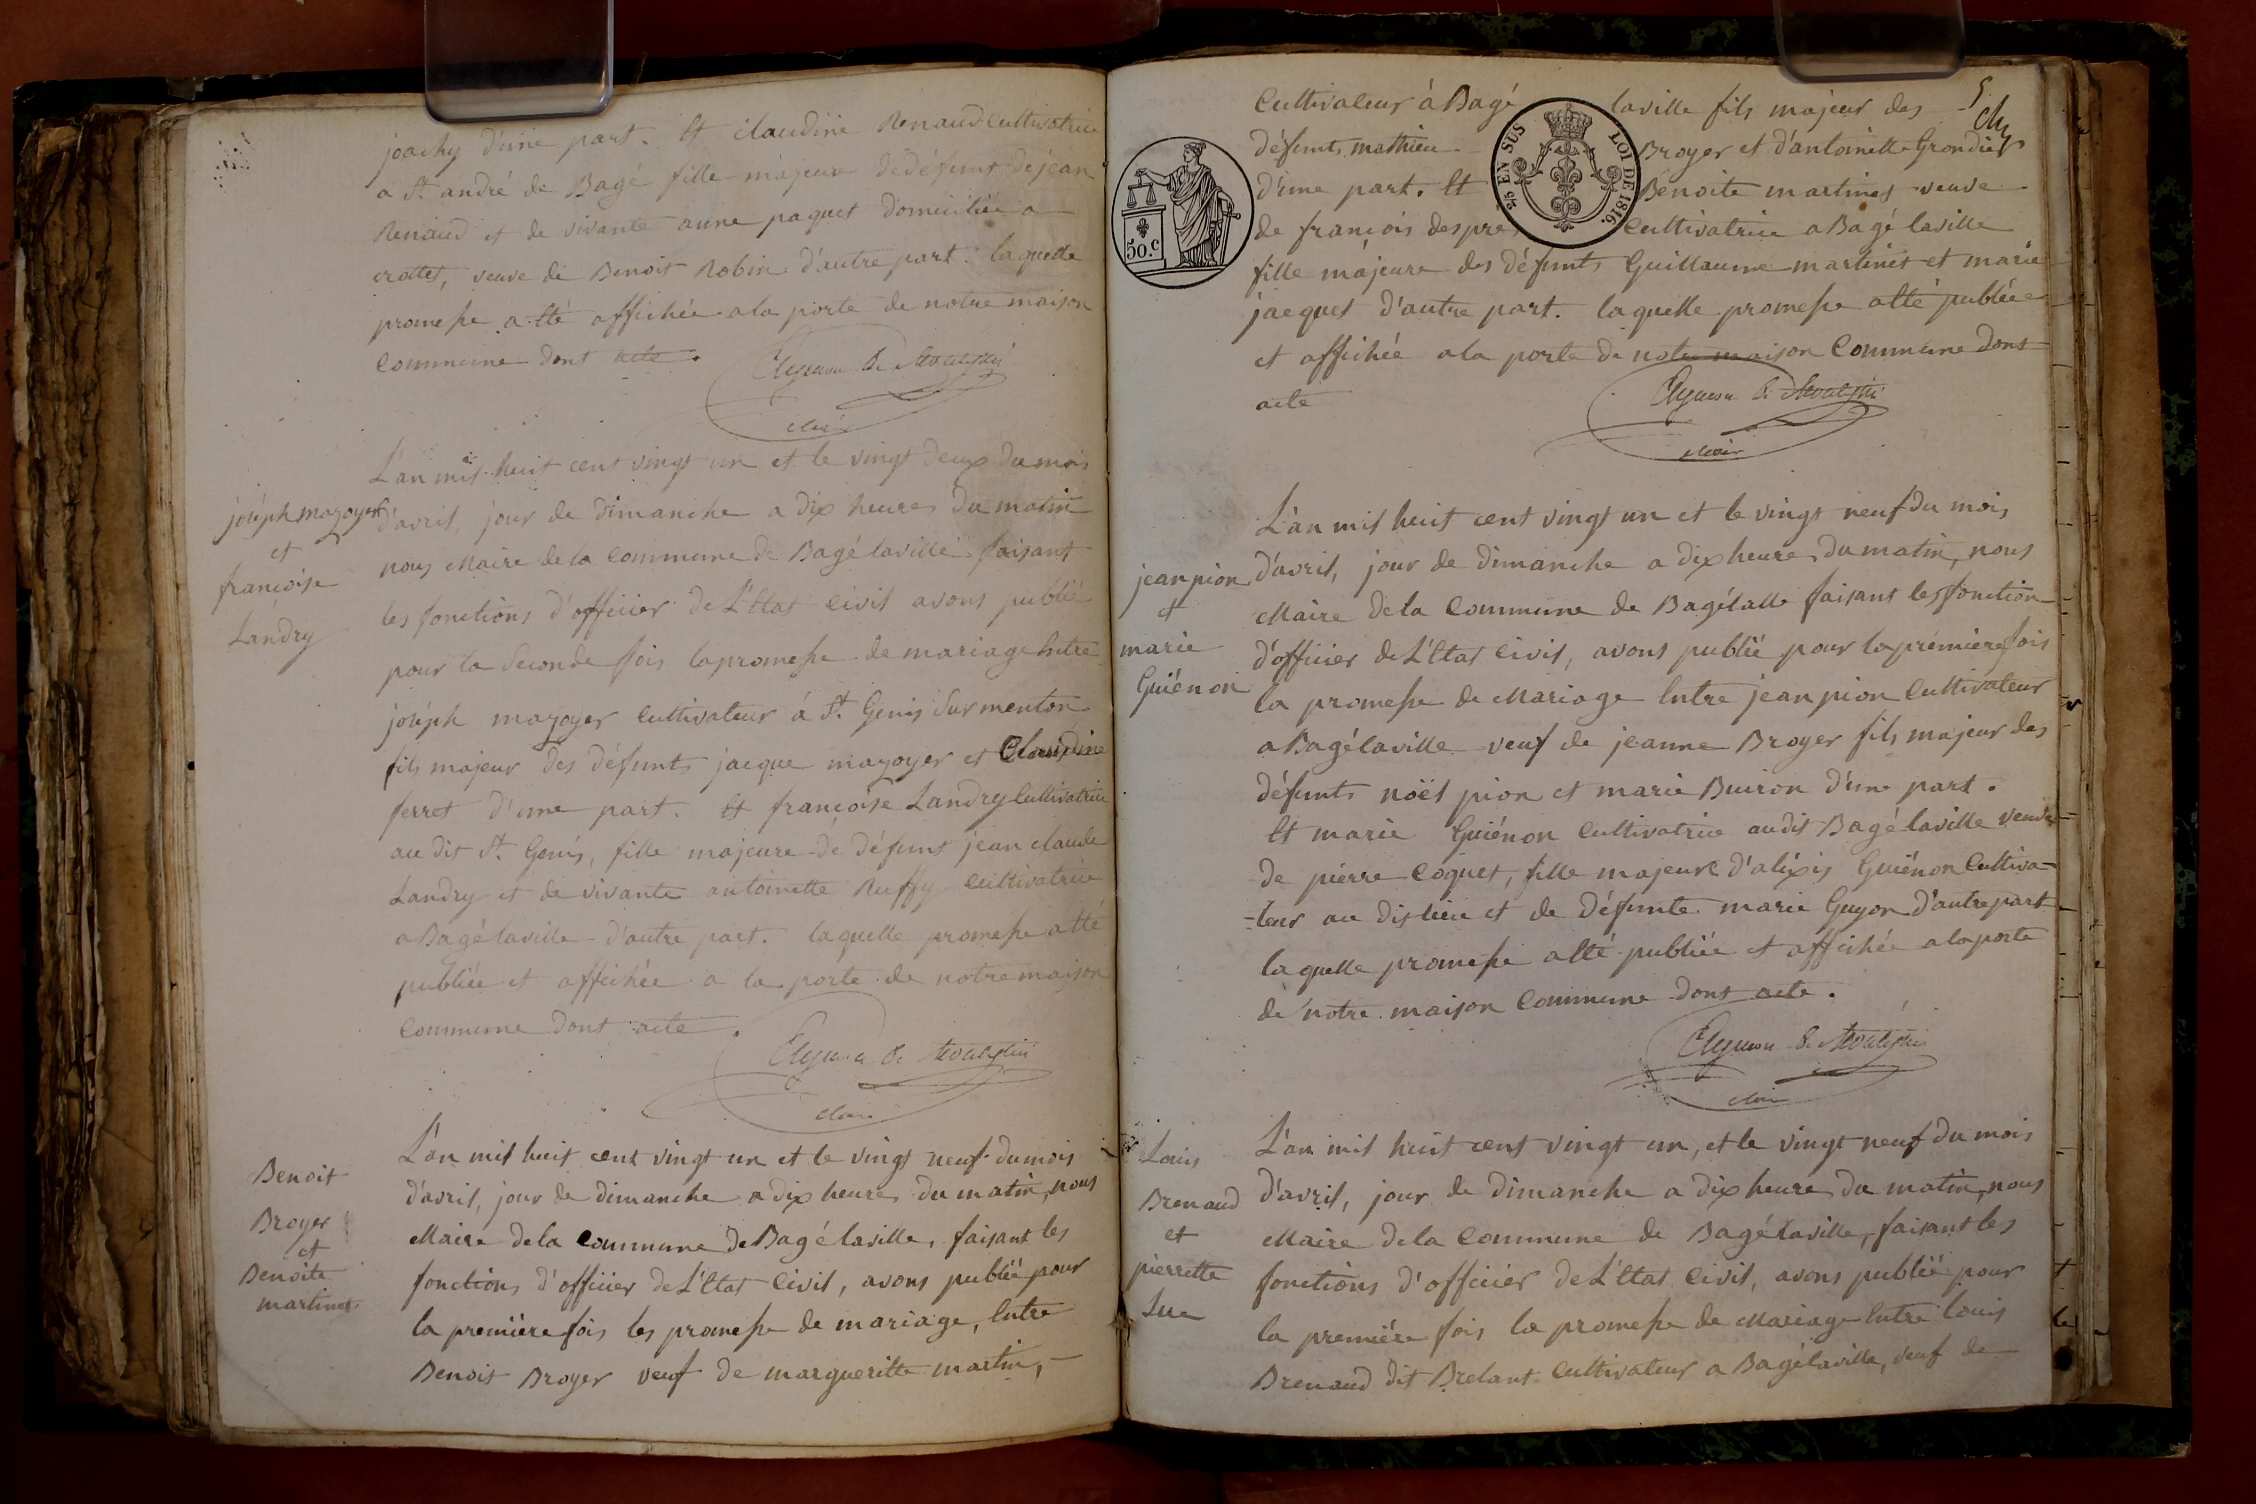 joachy d'une part. Et claudine Renaud cultivatrice
a St. andré de Bagé fille majeure de defunt de jean
Renaud et de vivante anne paquet domiciliée a
crottet, veuve de Benoit Robin d'autre part. laquelle
promesse a été affichée a la porte de notre maison
commune dont acte.
Maire
joséph mazoyer
et
françoise
Landry
L'an mil huit cent vingt un et le vingt deux du mois
d'avril, jour de dimanche a dix heures du matin
nous Maire de la commune de Bagé laville faisant
les fonctions d'officier de L'Etat civil avons publié
pour la Seconde fois la promesse de mariage Entre
joséph mazoyer cultivateur à St. Genis Sur menton
fils majeur des défunts jacque mazoyer et Claudine
ferret d'une part. Et françoise Landry Cultivatrice
au dit St. Genis, fille majeure de défunt jean claude
Landry et de vivante antoinette Ruffy cultivatrice
a Bagé laville d'autre part. laquelle promesse a été
publiée et affichée a la porte de notre maison
commune dont acte.
Maire
Benoit
Broyer
et
Benoite
martinet
L'an mil huit cent vingt un et le vingt neuf du mois
d'avril, jour de dimanche a dix heures du matin, nous
Maire de la commune de Bagé laville, faisant les
fonctions d'officier de L'Etat Civil, avons publié pour
la première fois les promesse de mariage, Entre
Benoit Broyer veuf de margueritte martin,
5
50.c
25 EN SUS LOI DE 1816.
Cultivateur à Bagé laville fils majeur des
défunts mathieu Broyer et d'antoinette Grondier
d'une part. Et Benoite martinet veuve
de françois despre cultivatrice a Bagé laville
fille majeure des défunts Guillaume martinet et marie
jacquet d'autre part. laquelle promesse a été publiée
et affichée a la porte de notre maison Commune dont
acte
Maire
jean pion
et
marie
Guiénon
L'an mil huit cent vingt un et le vingt neuf du mois
d'avril, jour de dimanche a dix heures du matin, nous
Maire de la Commune de Bagélalle faisant les fonction
d'officier de L'Etat Civil, avons publié pour la première fois
la promesse de Mariage Entre jean pion Cultivateur
a Bagé laville veuf de jeanne Broyer fils majeur des
défunts noël pion et marie Buiron d'une part.
Et marie Guiénon Cultivatrice au dit Bagé laville veuve
de pierre Coquet, fille majeure d'aléxis Guiénon Cultiva-
-teur au dit lieu et de défunte marie Guyon d'autre part
laquelle promesse a été publiée et affichée a la porte
de notre maison Commune dont acte.
Maire
Louis
Brenaud
et
pierrette
Luc
L'an mil huit cent vingt un, et le vingt neuf du mois
d'avril, jour de dimanche a dix heures du matin, nous
Maire de la Commune de Bagé laville, faisant les
fonctions d'officier de L'Etat Civil, avons publié pour
la première fois la promesse de Mariage Entre Louis
Brenaud dit Brelant Cultivateur a Bagé laville, veuf de